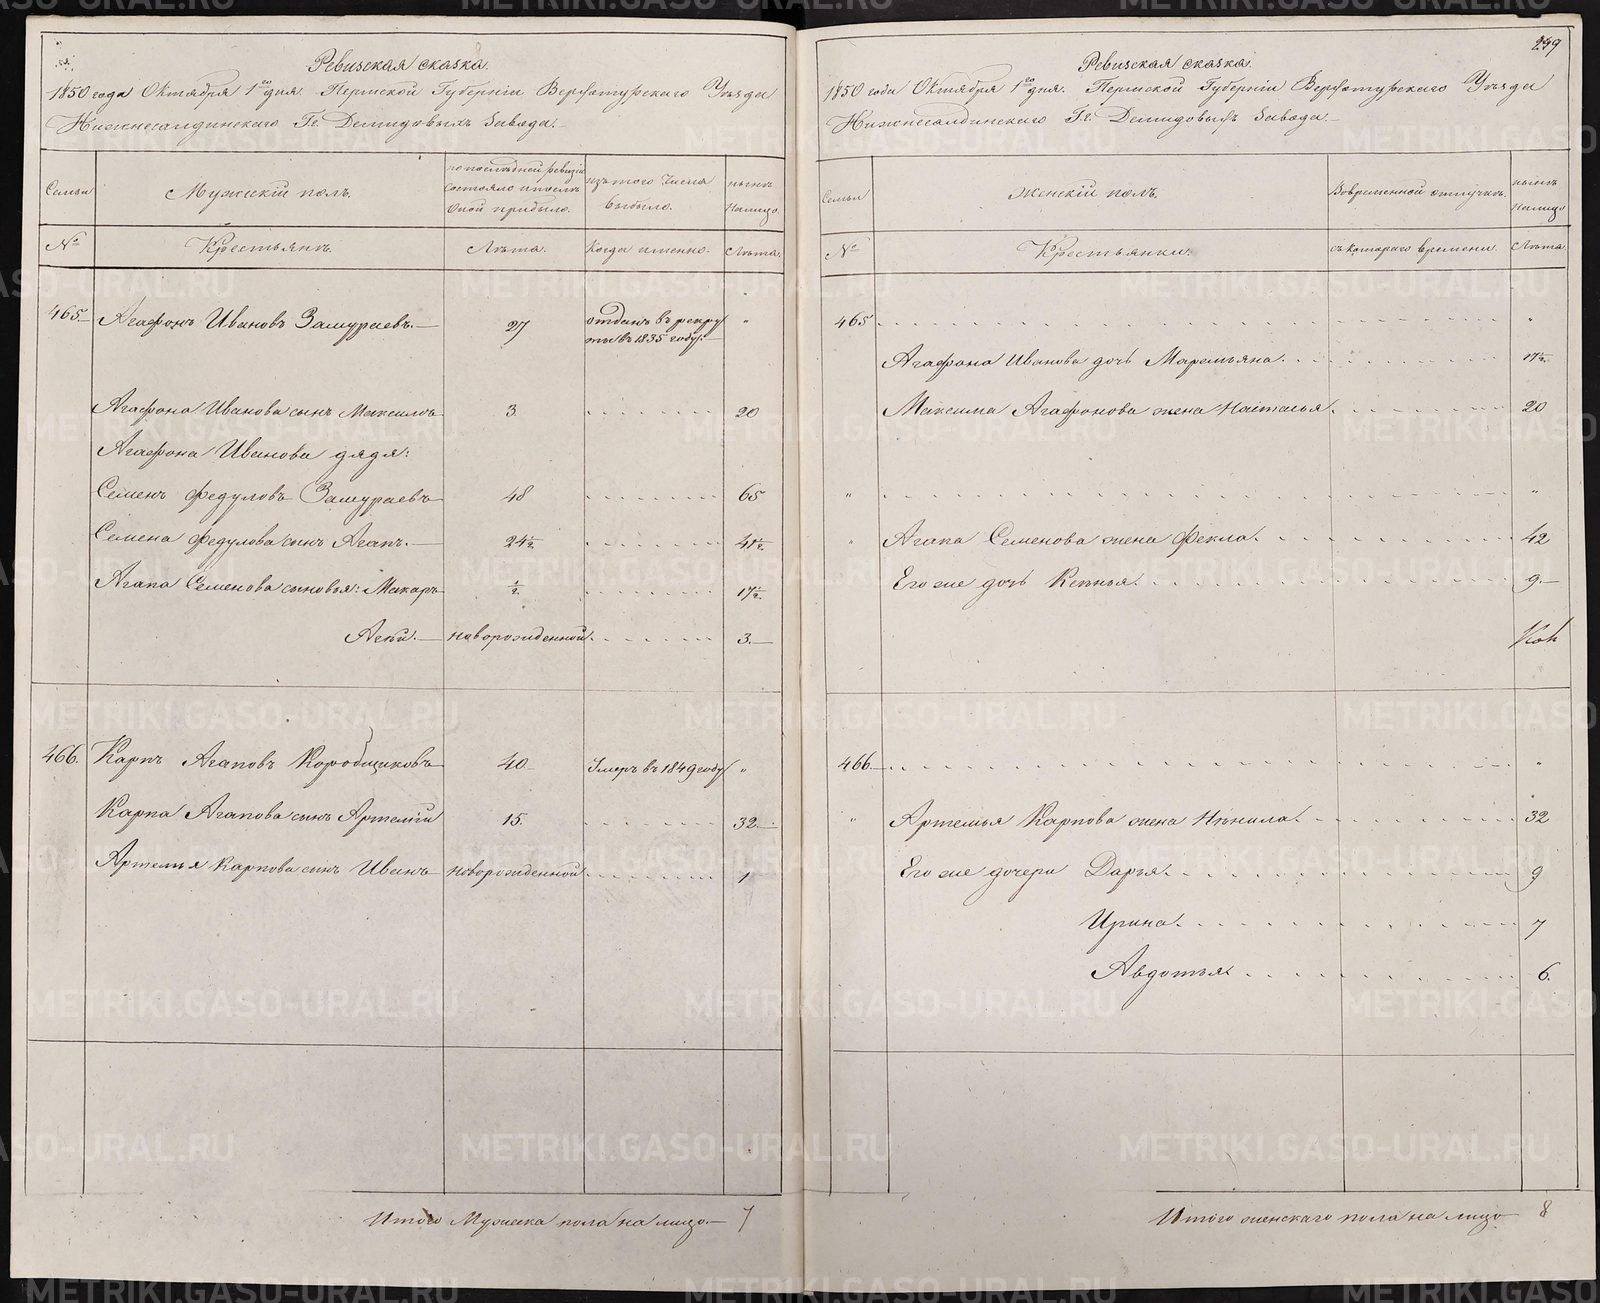 Ревизская сказка.
1850 года Октября 1го дня. Пермской Губерніи Верхотурскаго Уѣзда
Нижнесалдинскаго Гг. Демидовыхъ Завода.
Семьи
Мужскій полъ.
по послѣдней ревизіи состояло и послѣ оной прибыло.
изъ того числа выбыло.
нынѣ на лицо.
№
Крестьянъ.
Лѣта.
Когда именно.
Лѣта.
465. Агафонъ Ивановъ Замураевъ. 27 отданъ въ рекруты въ 1835 году. "
Агафона Иванова сынъ Максимъ 3. 20
Агафона Иванова дядя:
Семенъ Федуловъ Замураевъ 48 65
Семена Федулова сынъ Агапъ. 24½ 41½
Агапа Семенова сыновья: Макаръ ½ 17½
новорожденной 3.
466. Карпъ Агаповъ Коробщиковъ 40 Умеръ въ 1849 году "
Карпа Агапова сынъ Артемій 15. 32
Артемья Карпова сынъ Иванъ новорожденной 1
Итого Мужеска пола на лицо 7
249
Ревизская сказка.
1850 года Октября 1го дня. Пермской Губерніи Верхотурскаго Уѣзда
Нижнесалдинскаго Гг. Демидовыхъ Завода.
Семьи
Женскій полъ.
Во временной отлучкѣ.
нынѣ на лицо
№
Крестьянки.
съ котораго времени.
Лѣта.
465 "
Агафона Иванова дочь Маремьяна. 17½
Максима Агафонова жена Наталья. 20
" "
" Агапа Семенова жена Фекла. 42
Его же дочь Ксѣнья. 9
466 "
" Артемья Карпова жена Нѣнила. 32
Его же дочери Дарья. 9
Ирина. 7
Авдотья 6.
Итого женскаго пола на лицо 8
METRIKI.GASO-URAL.RU